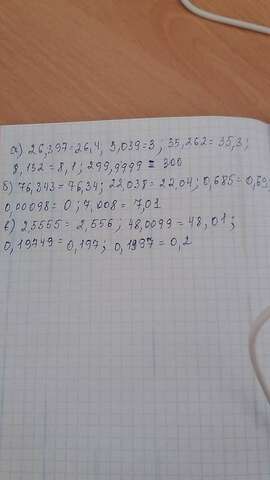 а) 26,397=26,4, 3,039=3; 35,262=35,3;
8,132=8,1; 299,9999=300
б) 76,343=76,34; 22,038=22,04; 0,685=0,69
0,00098=0; 7,008=7,01
в) 2,5555=2,556; 48,0099=48,01;
0,19749=0,197; 0,1997=0,2